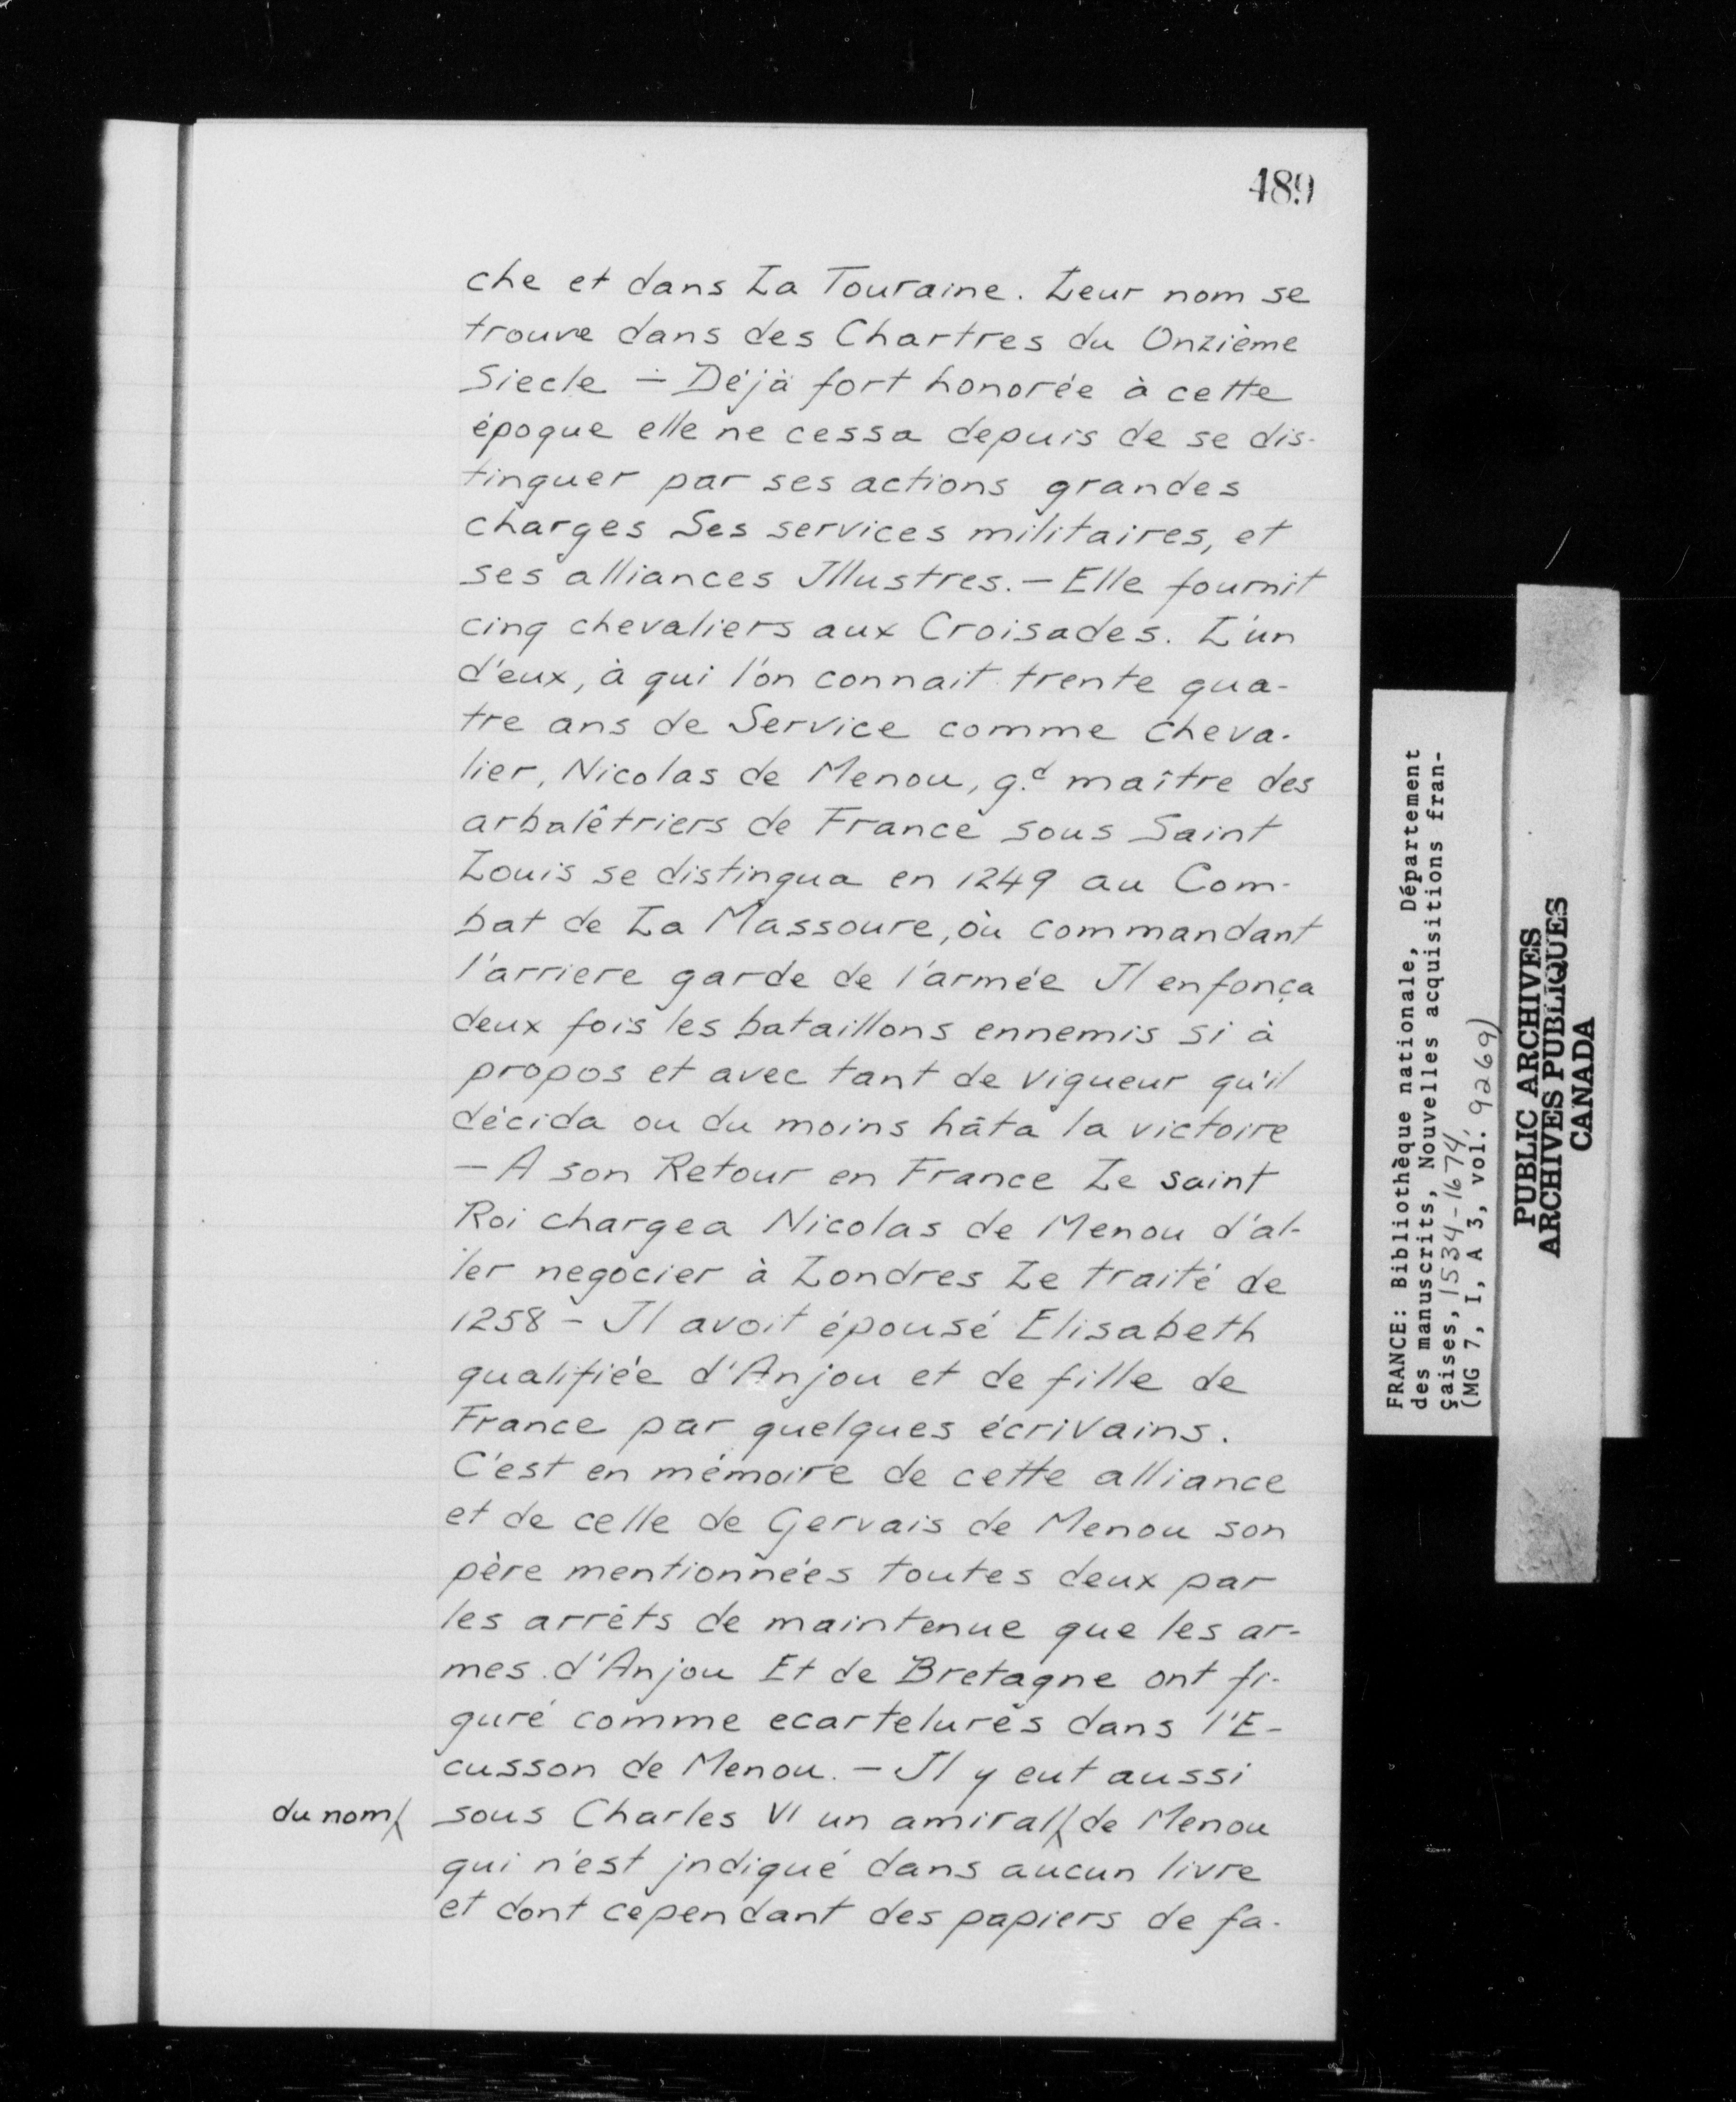 489
che et dans La Touraine. Leur nom se
trouve dans des Chartres du Onzième
Siecle - Déjà fort honorée à cette
époque elle ne cessa depuis de se dis-
tinguer par ses actions grandes
charges Ses services militaires, et
ses alliances Illustres. - Elle fournit
cinq chevaliers aux Croisades. L'un
d'eux, à qui l'on connait trente qua-
tre ans de Service comme cheva-
lier, Nicolas de Menou, g.d maître des
arbalêtriers de France sous Saint
Louis se distingua en 1249 au Com-
bat de La Massoure, où commandant
l'arriere garde de l'armée Il enfonça
deux fois les bataillons ennemis si à
propos et avec tant de vigueur qu'il
décida ou du moins hâta la victoire
- A son Retour en France Le saint
Roi chargea Nicolas de Menou d'al-
ler negocier à Londres Le traité de
1258 - Il avoit épousé Elisabeth
qualifiée d'Anjou et de fille de
France par quelques écrivains.
C'est en mémoire de cette alliance
et de celle de Gervais de Menou son
père mentionnées toutes deux par
les arrêts de maintenue que les ar-
mes d'Anjou Et de Bretagne ont fi-
guré comme ecartelurés dans l'E-
cusson de Menou. - Il y eut aussi
du nom
sous Charles VI un amiral de Menou
qui n'est indiqué dans aucun livre
et dont cependant des papiers de fa-
FRANCE: Bibliothèque nationale, Département
des manuscrits, Nouvelles acquisitions fran-
çaises, 1534-1674
(MG 7, I, A 3, vol. 9269)
PUBLIC ARCHIVES
ARCHIVES PUBLIQUES
CANADA